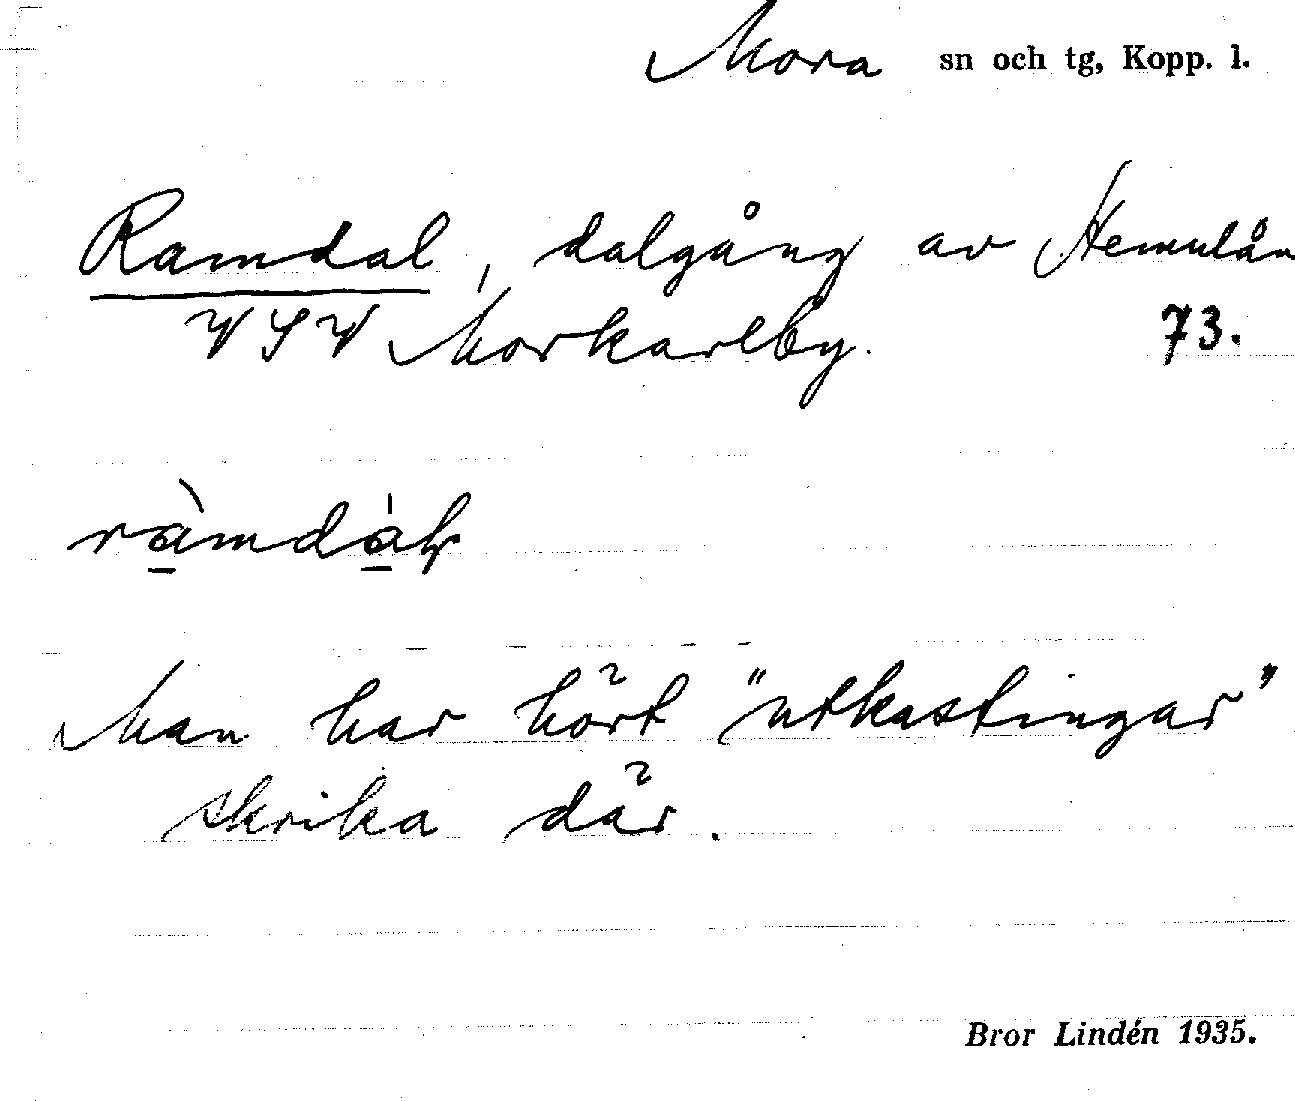 Mora sn och tg, Kopp. l.
Ramdal, dalgång av Hemulån
VSV Morkarlby. 73.
ràmdàł
Man har hört "utkastingar"
skrika där.
Bror Lindén 1935.